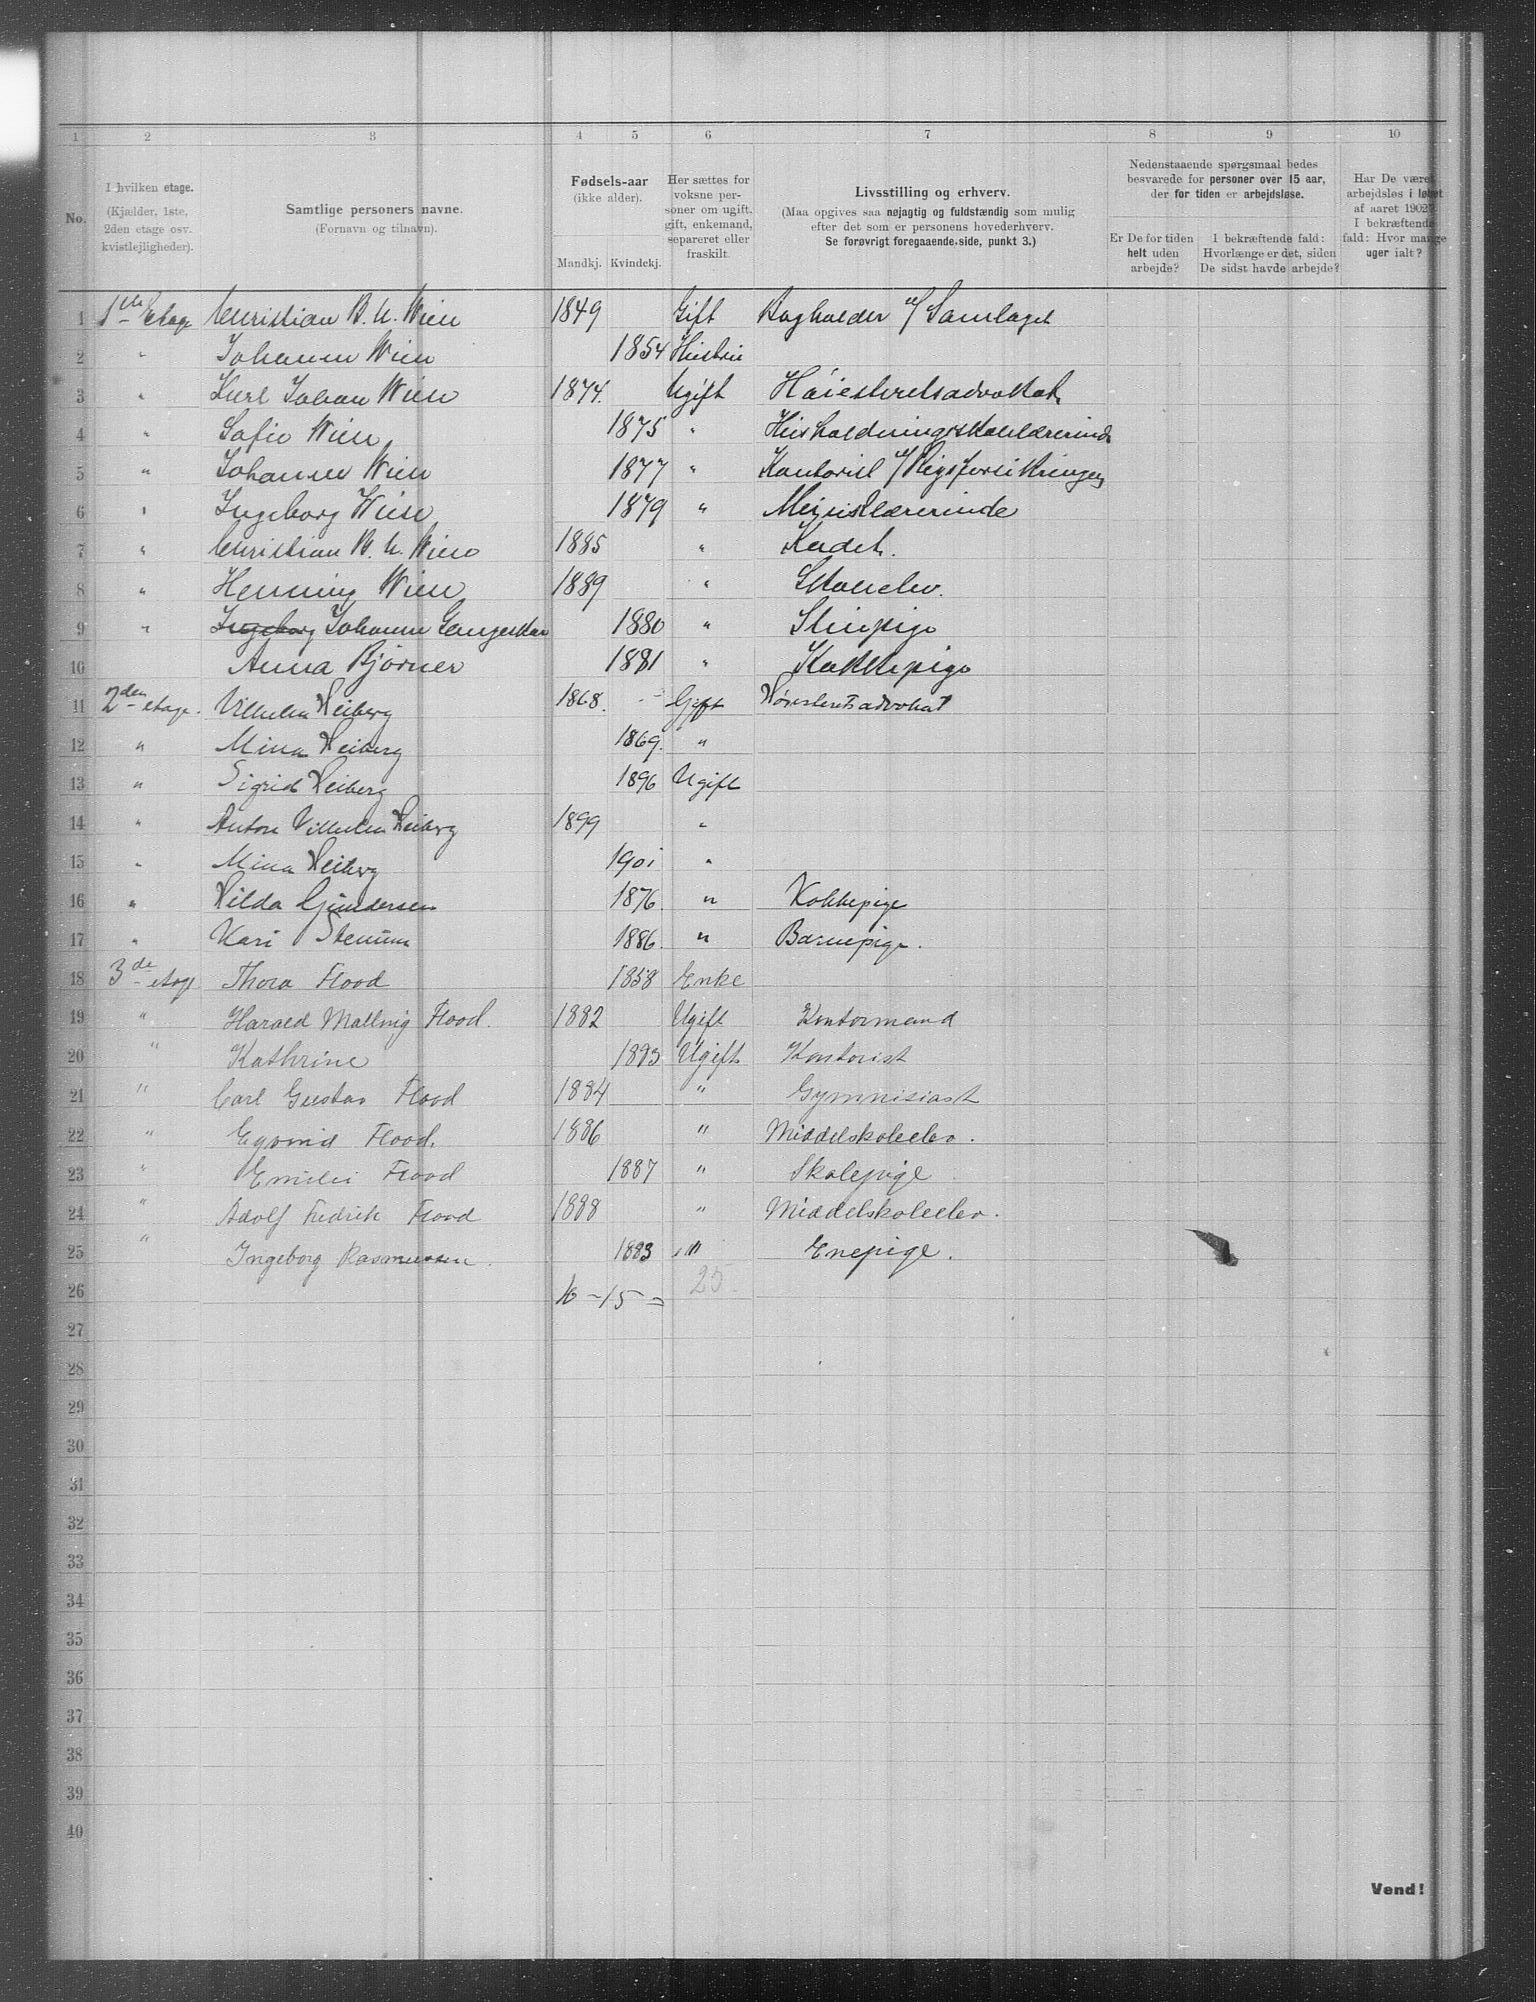 1 2 3 4 5 6 7 8 9 10
No.
I hvilken etage.
(Kjælder, 1ste,
2den etage osv.
kvistlejligheder).
Samtlige personers navne.
(Fornavn og tilnavn).
Fødsels-aar
(ikke alder).
Mandkj. Kvindekj.
Her sættes for
voksne per-
soner om ugift,
gift, enkemand,
separeret eller
fraskilt.
Livsstilling og erhverv.
(Maa opgives saa nøjagtig og fuldstændig som mulig
efter det som er personens hovederhverv.
Se forøvrigt foregaaende side, punkt 3.)
Nedenstaaende spørgsmaal bedes
besvarede for personer over 15 aar,
der for tiden er arbejdsløse.
Er De for tiden
helt uden
arbejde?
I bekræftende fald:
Hvorlænge er det, siden
De sidst havde arbejde?
Har De været
arbejdsløs i løbet
af aaret 1902?
I bekræftende
fald: Hvor mange
uger ialt?
1 1ste Etage Christian B. U. Wien 1849 Gift Bogholder v/ Samlaget
2 " Johanne Wien 1854 Hustru
3 " Karl Johan Wien 1874. Ugift Høiesteretsadvokat
4 " Sofie Wien 1875 " Husholdningsskolelærerinde
5 " Johanne Wien 1877 " Kontorist v/ Rigsforsikringen
6 " Ingeborg Wien 1879 " Musiklærerinde
7 " Christian B. U. Wien 1885 " Kadet.
8 " Henning Wien 1889 " Skoleelev.
9 " Ingeborg Johanne 1880 " Stuepige
10 Anna Bjørner 1881 " Kokkepige
11 2den etage. Vilhelm Heiberg 1868. Gift Høiesteretsadvokat
12 " Mina Heiberg 1869. "
13 " Sigrid Heiberg 1896 Ugift
14 " Anton Vilhelm Heiberg 1899 "
15 " Mina Heiberg 1901 "
16 " Hilda Gundersen 1876. " Kokkepige
17 " Kari Stenum 1886. " Barnepige.
18 3de etage Thora Flood 1858 Enke
19 " Harald Mallvig Flood. 1882 Ugift Kontormand
20 " Kathrine 1883 Ugift Kontorist
21 " Carl Gustav Flood 1884 " Gymnisiast
22 " Eyvind Flood. 1886 " Middelskoleelev.
23 " Emilie Flood 1887 " Skolepige
24 " Adolf Fredrik Flood 1888 " Middelskoleelev.
25 " Ingeborg Rasmussen. 1883 " Enepige.
26 10 – 15 = 25.
27
28
29
30
31
32
33
34
35
36
37
38
39
40
Vend!